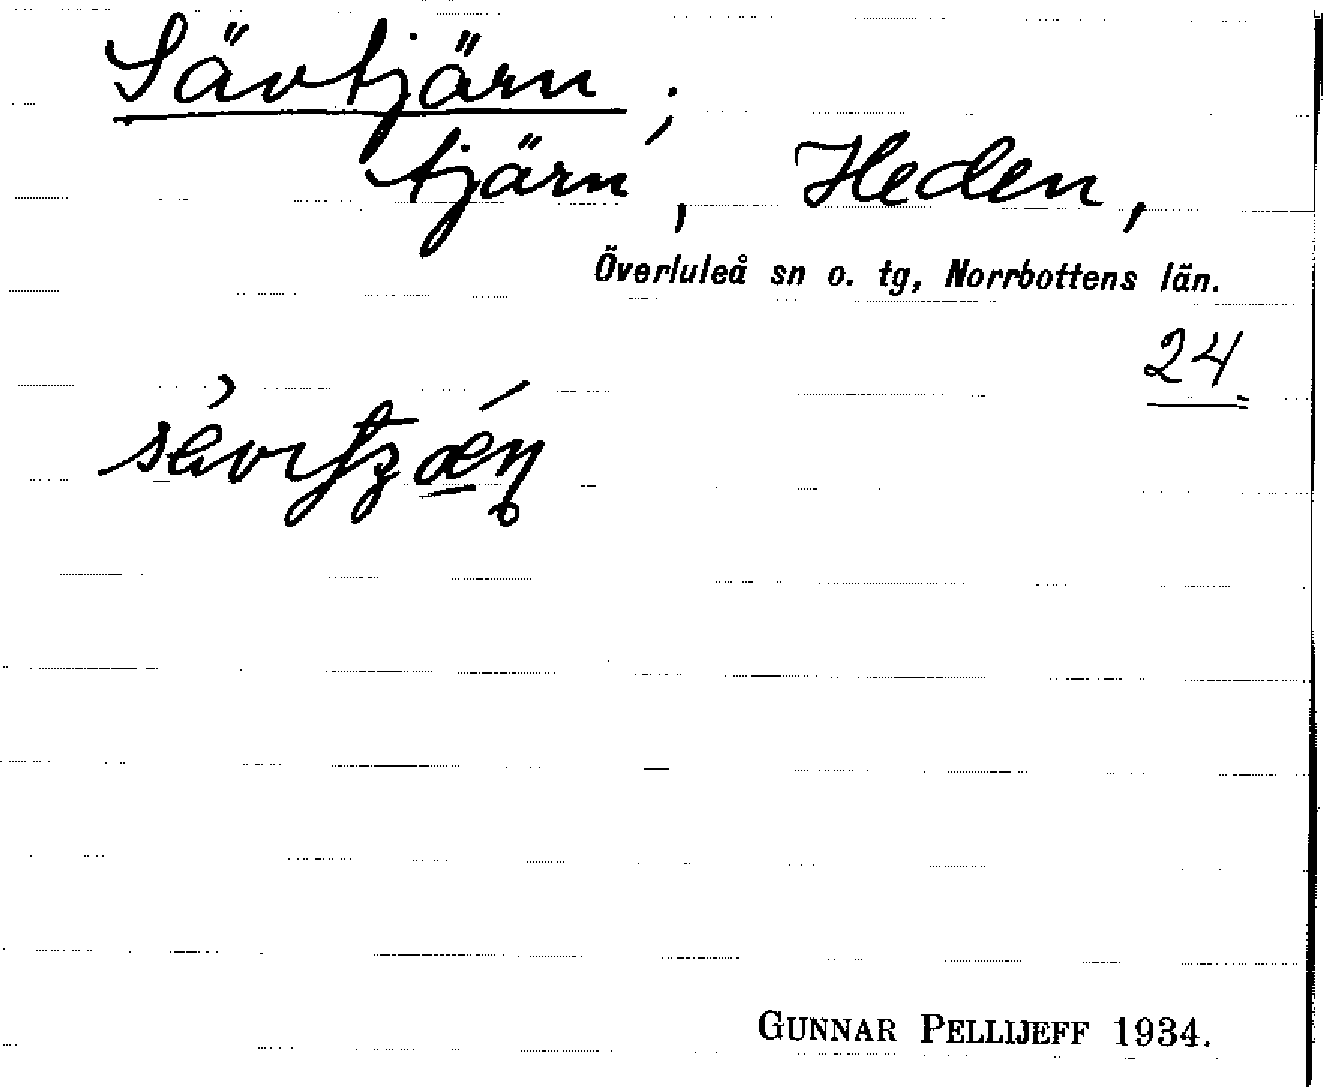 Sävtjärn;
tjärn, Heden,
Överluleå sn o. tg, Norrbottens län.
24
GUNNAR PELLIJEFF 1934.